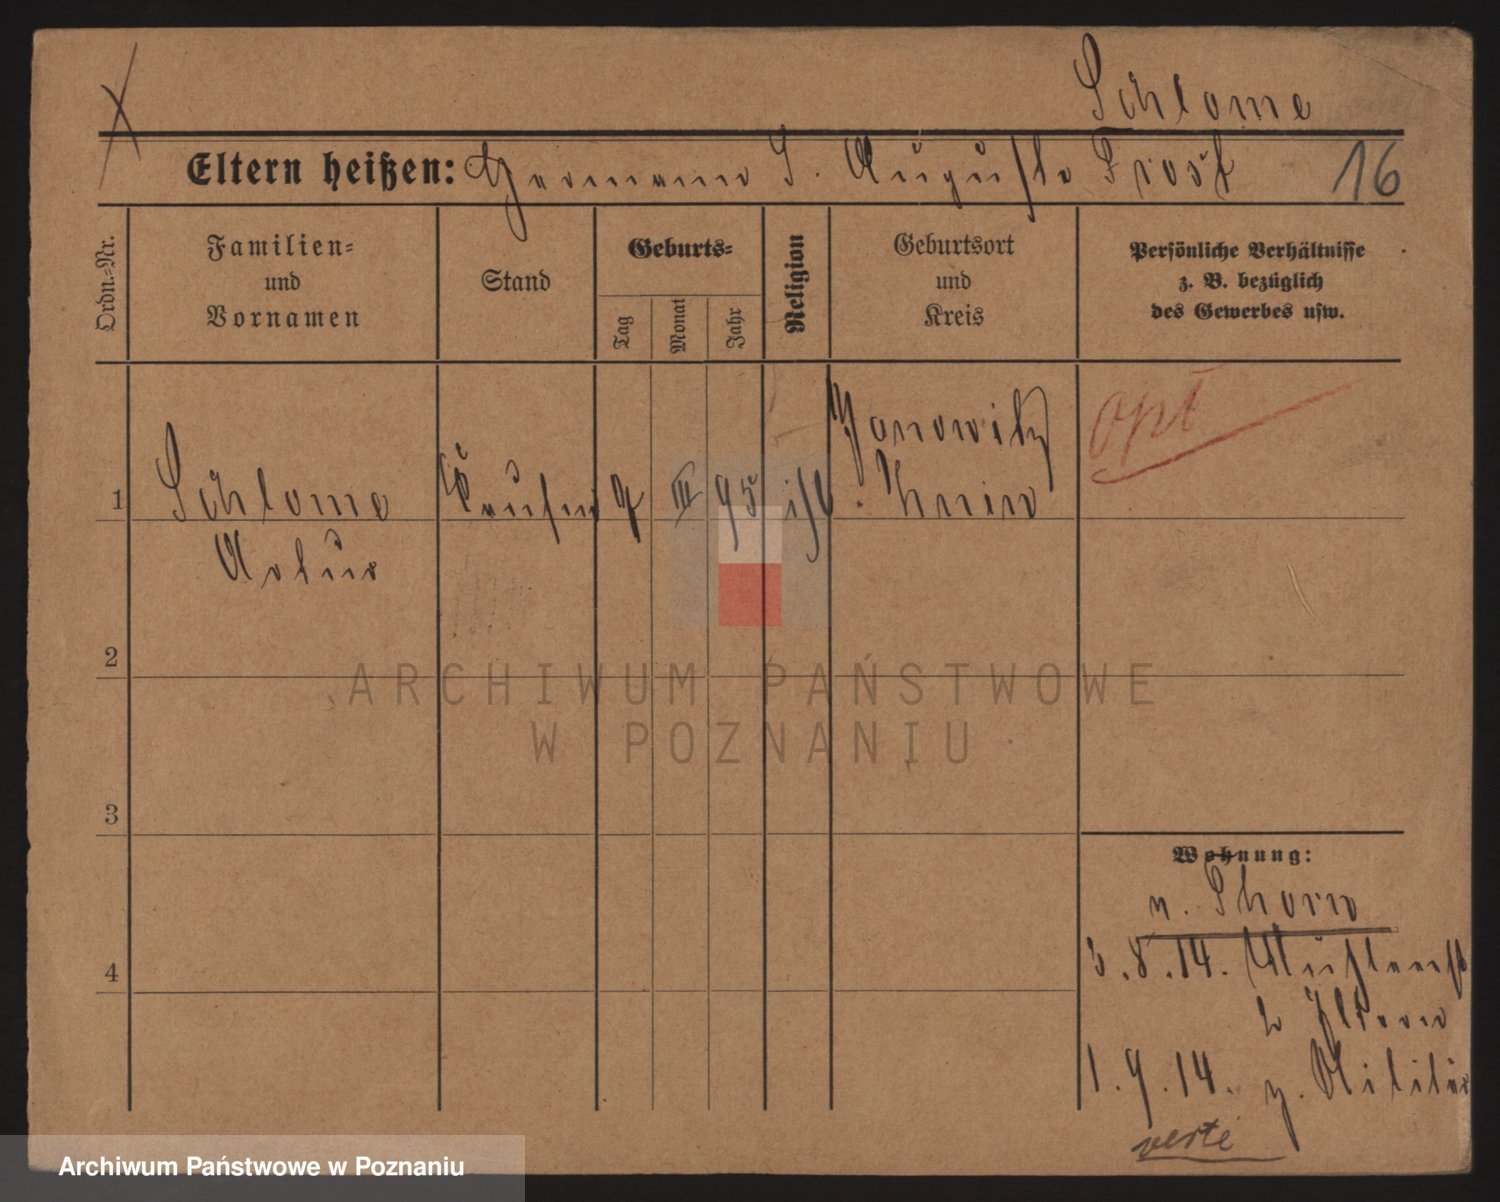 Schlome
Eltern heißen: Hermann u. Auguste Prost 16
Ordn.=Nr.
Familien=
und
Vornamen
Stand
Geburts=
Tag
Monat
Jahr
Religion
Geburtsort
und
Kreis
Persönliche Verhältnisse
z. B. bezüglich
des Gewerbes usw.
opt
1
Schlome
Artur
Kaufm
9
III
95
isr
Janowitz
Kr. Znin
2
3
4
Wohnung:
n. Thorn
3.8.14.
b Eltern
1.9.14. z. Militär
verte
ARCHIWUM PAŃSTWOWE
W POZNANIU
Archiwum Państwowe w Poznaniu